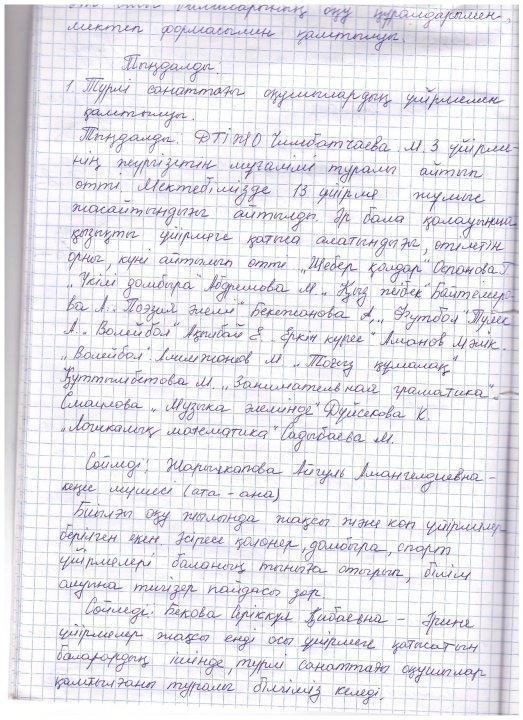 оқу құралдарымен,
мектеп формасымен қамтылуы.
Тыңдалды.
1. Түрлі санаттағы оқушылардың үйірмемен
қамтылуы.
Тыңдалды. ДТІЖО Чимбатчаева М.З үйірме-
нің жүргізетін мұғалімі туралы айтып
өтті. Мектебімізде 13 үйірме жұмыс
жасайтындығы айтылды. Әр бала қалауынша
қызықты үйірмеге қатыса алатындығы, өтілетін
орны, күні айтылып өтті. „Шебер қолдар" Оспанова Г
„Үкілі домбыра" Абдримова М. „Қыз жібек" Байтемиро-
ва А. „Поэзия әлемі" Бекжанова А, „Футбол"
А. „Волейбол" Ақылбай Е. „Еркін күрес" Аманов Мәлік.
„Волейбол" Алимжанов М „Тоғыз құмалақ"
Құттымбетова М. „Занимательная граматика".
Смаилова „Музыка әлемінде" Дүйсекова К.
„Логикалық математика" Садыбаева М.
Сөйледі: Айгуль Амангелдиевна -
кеңес мүшесі (ата - ана)
Биылғы оқу жылында жақсы және көп үйірмелер
берілген екен. Әсіресе қолөнер, домбыра, спорт
үйірмелері баланың тынығып отырып, білім
алуына тигізер пайдасы зор.
Сөйледі: Бекова Қибаевна - Әрине
үйірмелер жақсы енді осы үйірмеге қатысатын
балалардың ішінде, түрлі санаттағы оқушылар
қамтылғаны туралы білгіміз келеді.